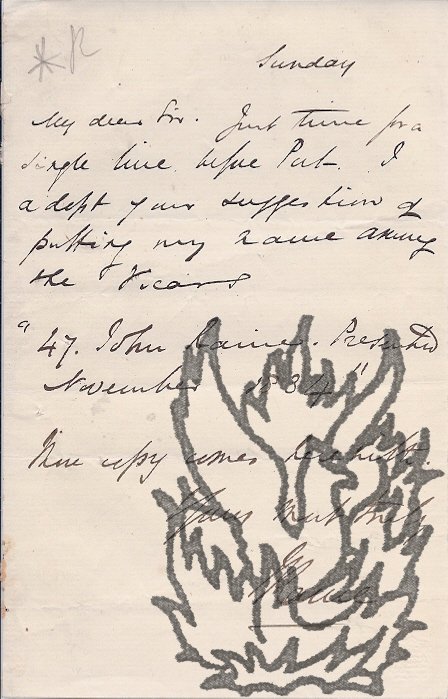 R
Sunday
My dear Sir. Just time for a
single line before Post. I
adopt your suggestion of
putting my name among
the Vicars
"47. John Raine. Presented
November 1834"
More copy comes herewith.
Yours most truly
J Raine